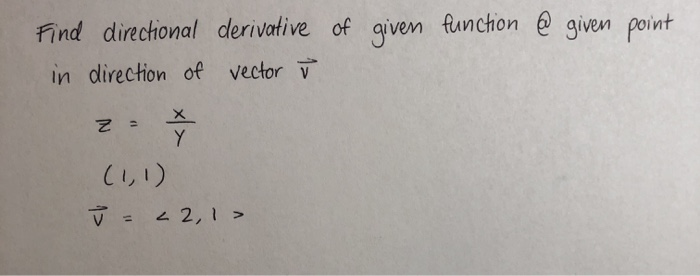 Find directional derivative of given function @ given point
in direction of vector v⃗
z = x/y
(1,1)
v⃗ = < 2, 1 >